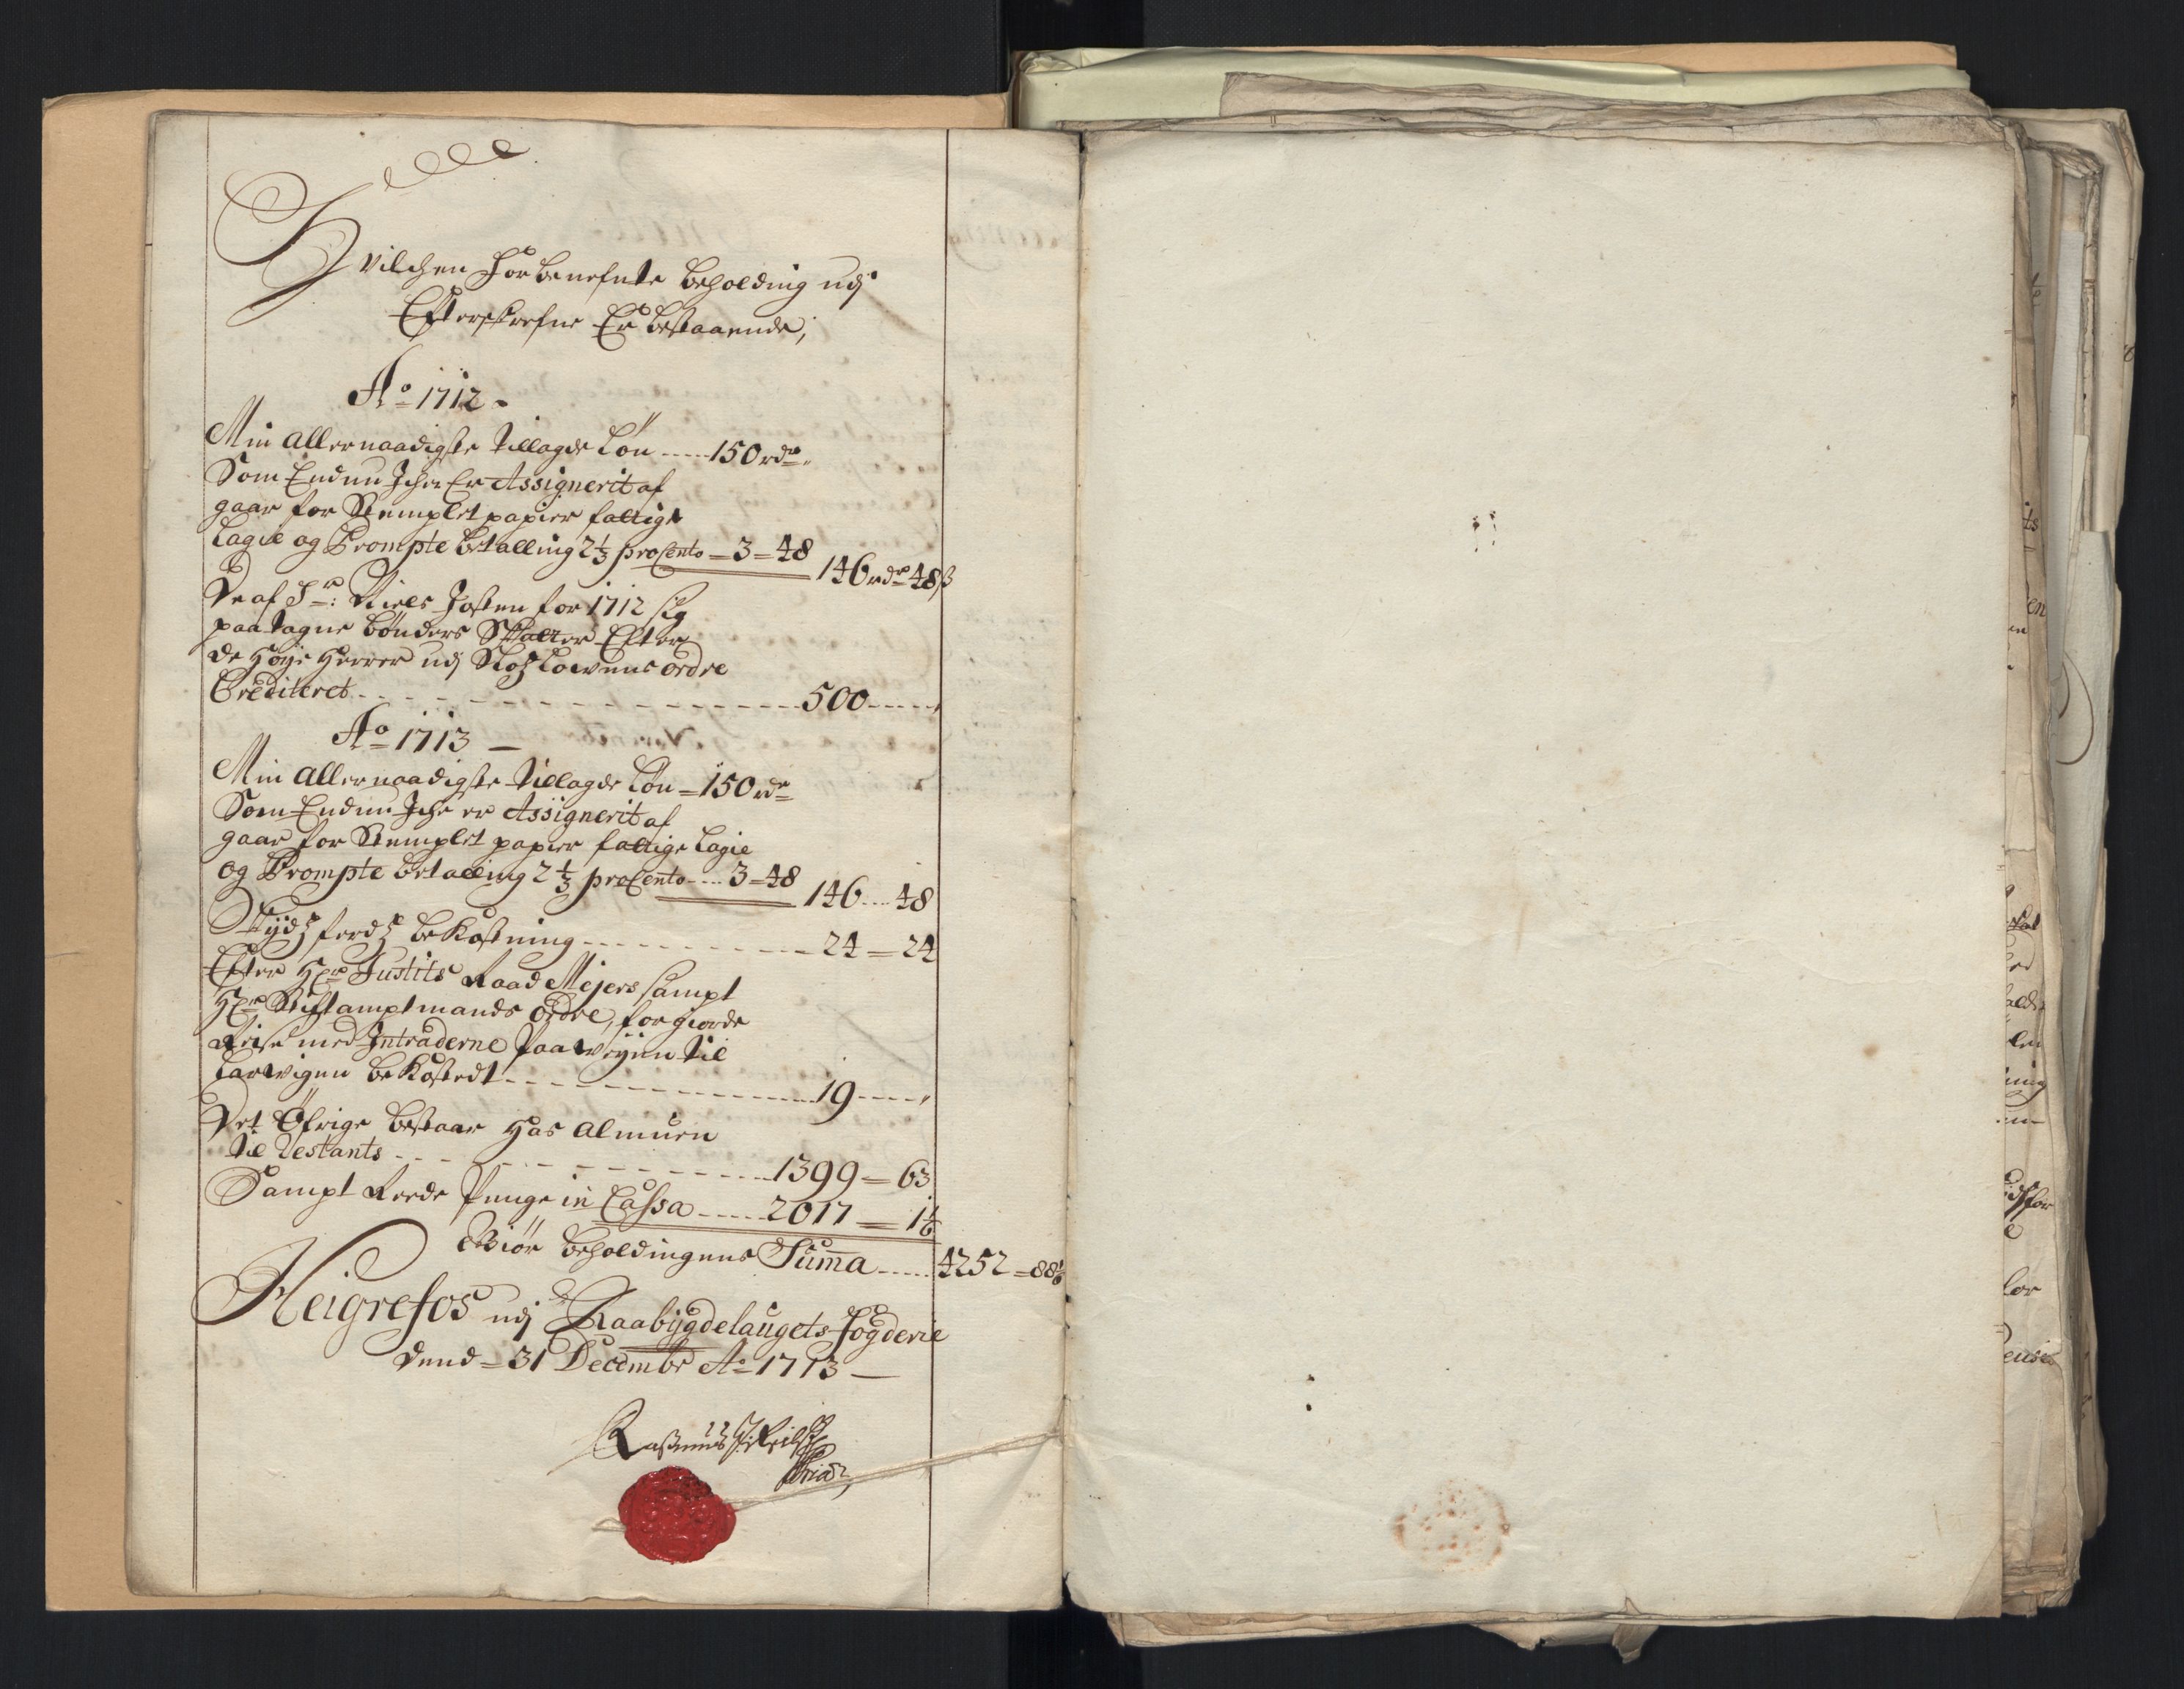 Hvilchen Forbenefnte beholding udj
Efterskrefne Er bestaaende,
Ao 1712 -
Min allernaadigste tillagde Løn ----- 150 rdr „
Som Endnu Iche Er Assignerit af
gaar for Stemplet papier fattige
Lagie og Prompte betalling 2 1/3 procento = 3 = 48
146 rdr 48 ß
De af Sr: Niels Josten for 1712 sig
paatagne bønders Skatter Efter
de Høye Herrer udj Slotzlowens ordre
Crediteret - - - - - 500 ---- „
Ao 1713 —
Min allernaadigste tillagde Løn = 150 rdr
Som Endnu Iche er Assignerit af
gaar for Stemplet papier fattige Lagie
og Prompte betalling 2 1/3 procento ---- 3 = 48
146 ---- 48
Skydtz ferdtz bekostning - - - - - 24 = 24
Efter Hr Justits Raad Mejers sampt
Hr Stiftamptmands ordre, for giorde
Reise med Intraderne paa weyen til
Larwigen bekostedt - - - - - 19 ---- „
Det Øfrige bestaar hos almuen
til Restants - - - - - 1399 = 63
Sampt Reede Penge in Cassa ----- 2017 = 1 1/6
Giør beholdingens Summa ----- 4252 = 88 1/6
Heigrefos udj Raabygdelaugets Fogderie
dend = 31 Decembr Ao 1713 —
Rasmus